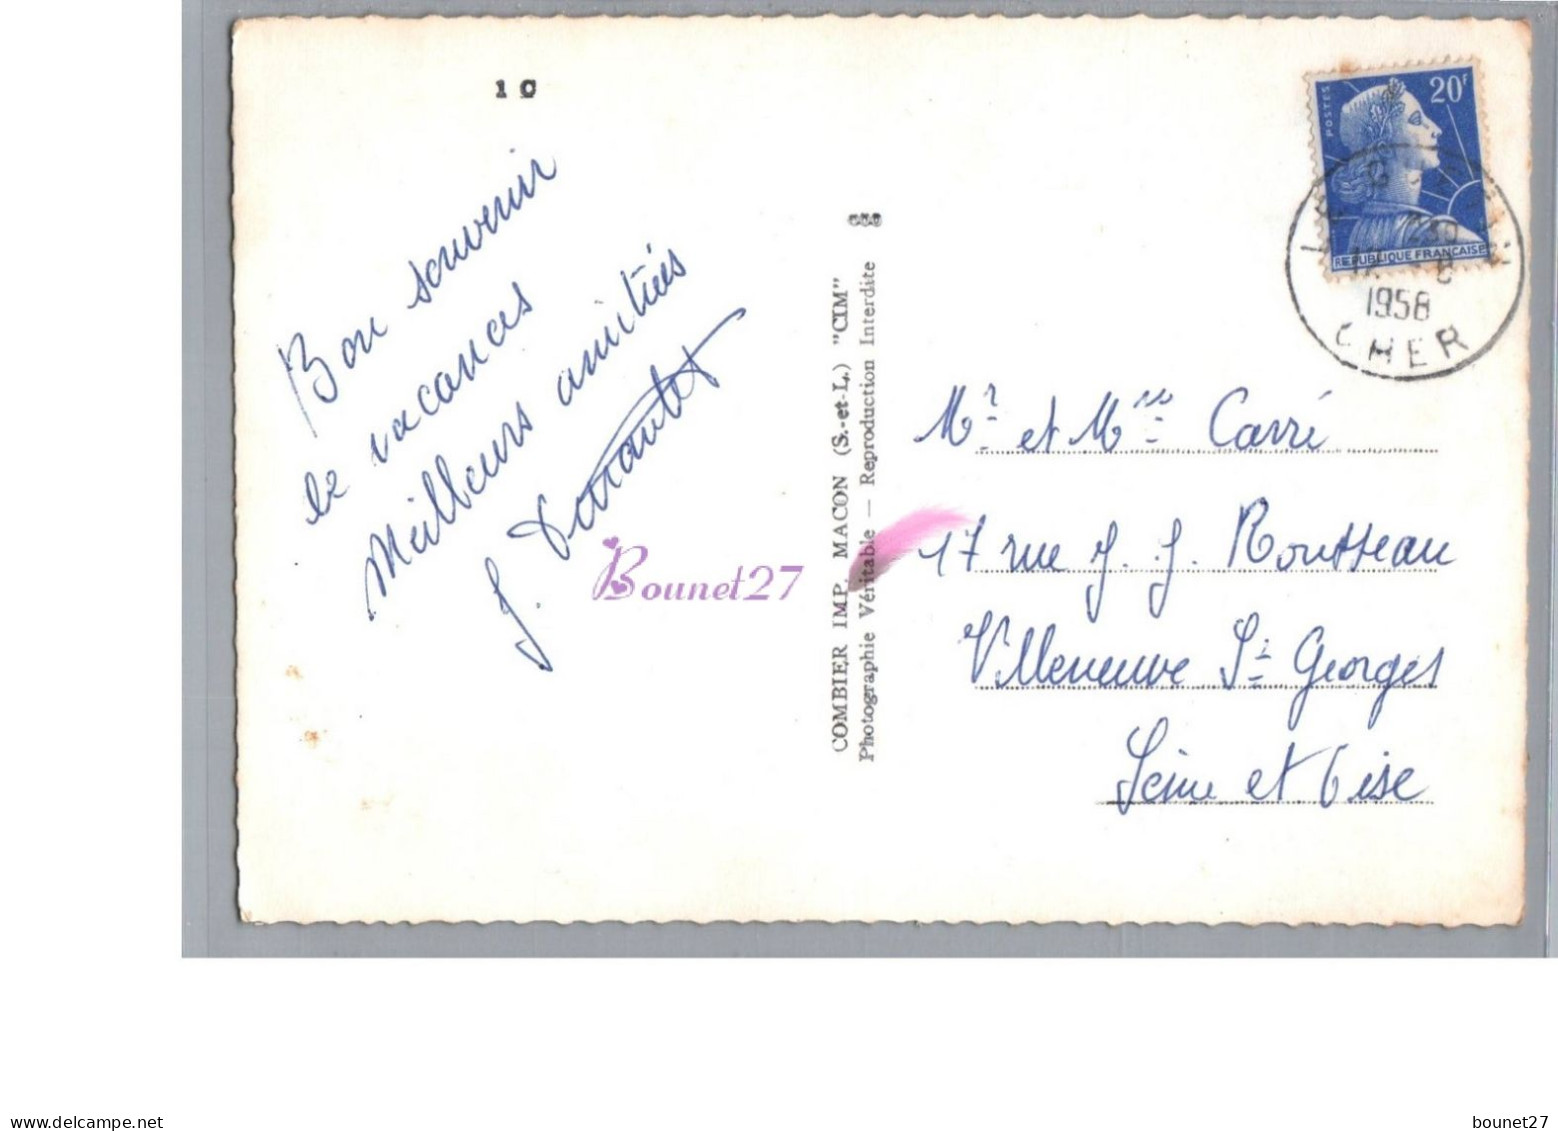 1 C
Bon souvenir
de vacances
Meilleurs amitiés
J.
Bounet27
COMBIER IMP. MACON (S.-et-L.) "CIM"
Photographie Véritable — Reproduction Interdite
POSTES
20F
REPUBLIQUE FRANÇAISE
1958
CHER
Mr et Mme Carré
17 rue J. J. Rousseau
Villeneuve St Georges
Seine et Oise
bounet27